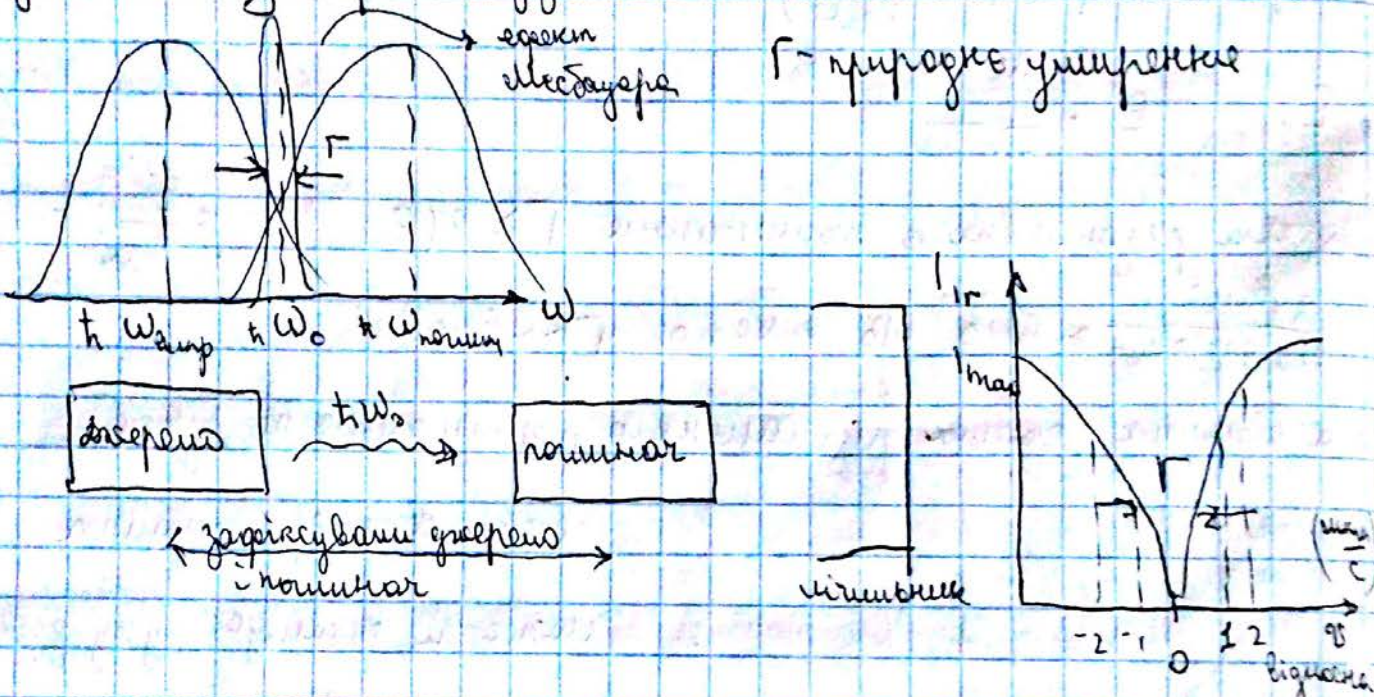 ефект
Месбауера
Г - природнє уширення
Г
ħ ω випр ħ ω₀ ħ ω поглин ω
джерело
ħω₀
поглинач
зафіксували джерело
і поглинач
лічильник
I γ
I max
Г
-2 -1 0 1 2
v
відносна